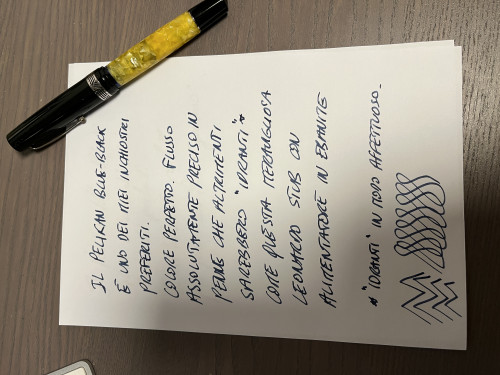 IL PELIKAN BLUE-BLACK
È UNO DEI MIEI INCHIOSTRI
PREFERITI.
COLORE PERFETTO. FLUSSO
ASSOLUTAMENTE PRECISO IN
PENNE CHE ALTRIMENTI
SAREBBERO "IDRANTI"*
COME QUESTA MERAVIGLIOSA
LEONARDO STUB CON
ALIMENTATORE IN EBANITE
* "IDRANTI" IN MODO AFFETTUOSO.